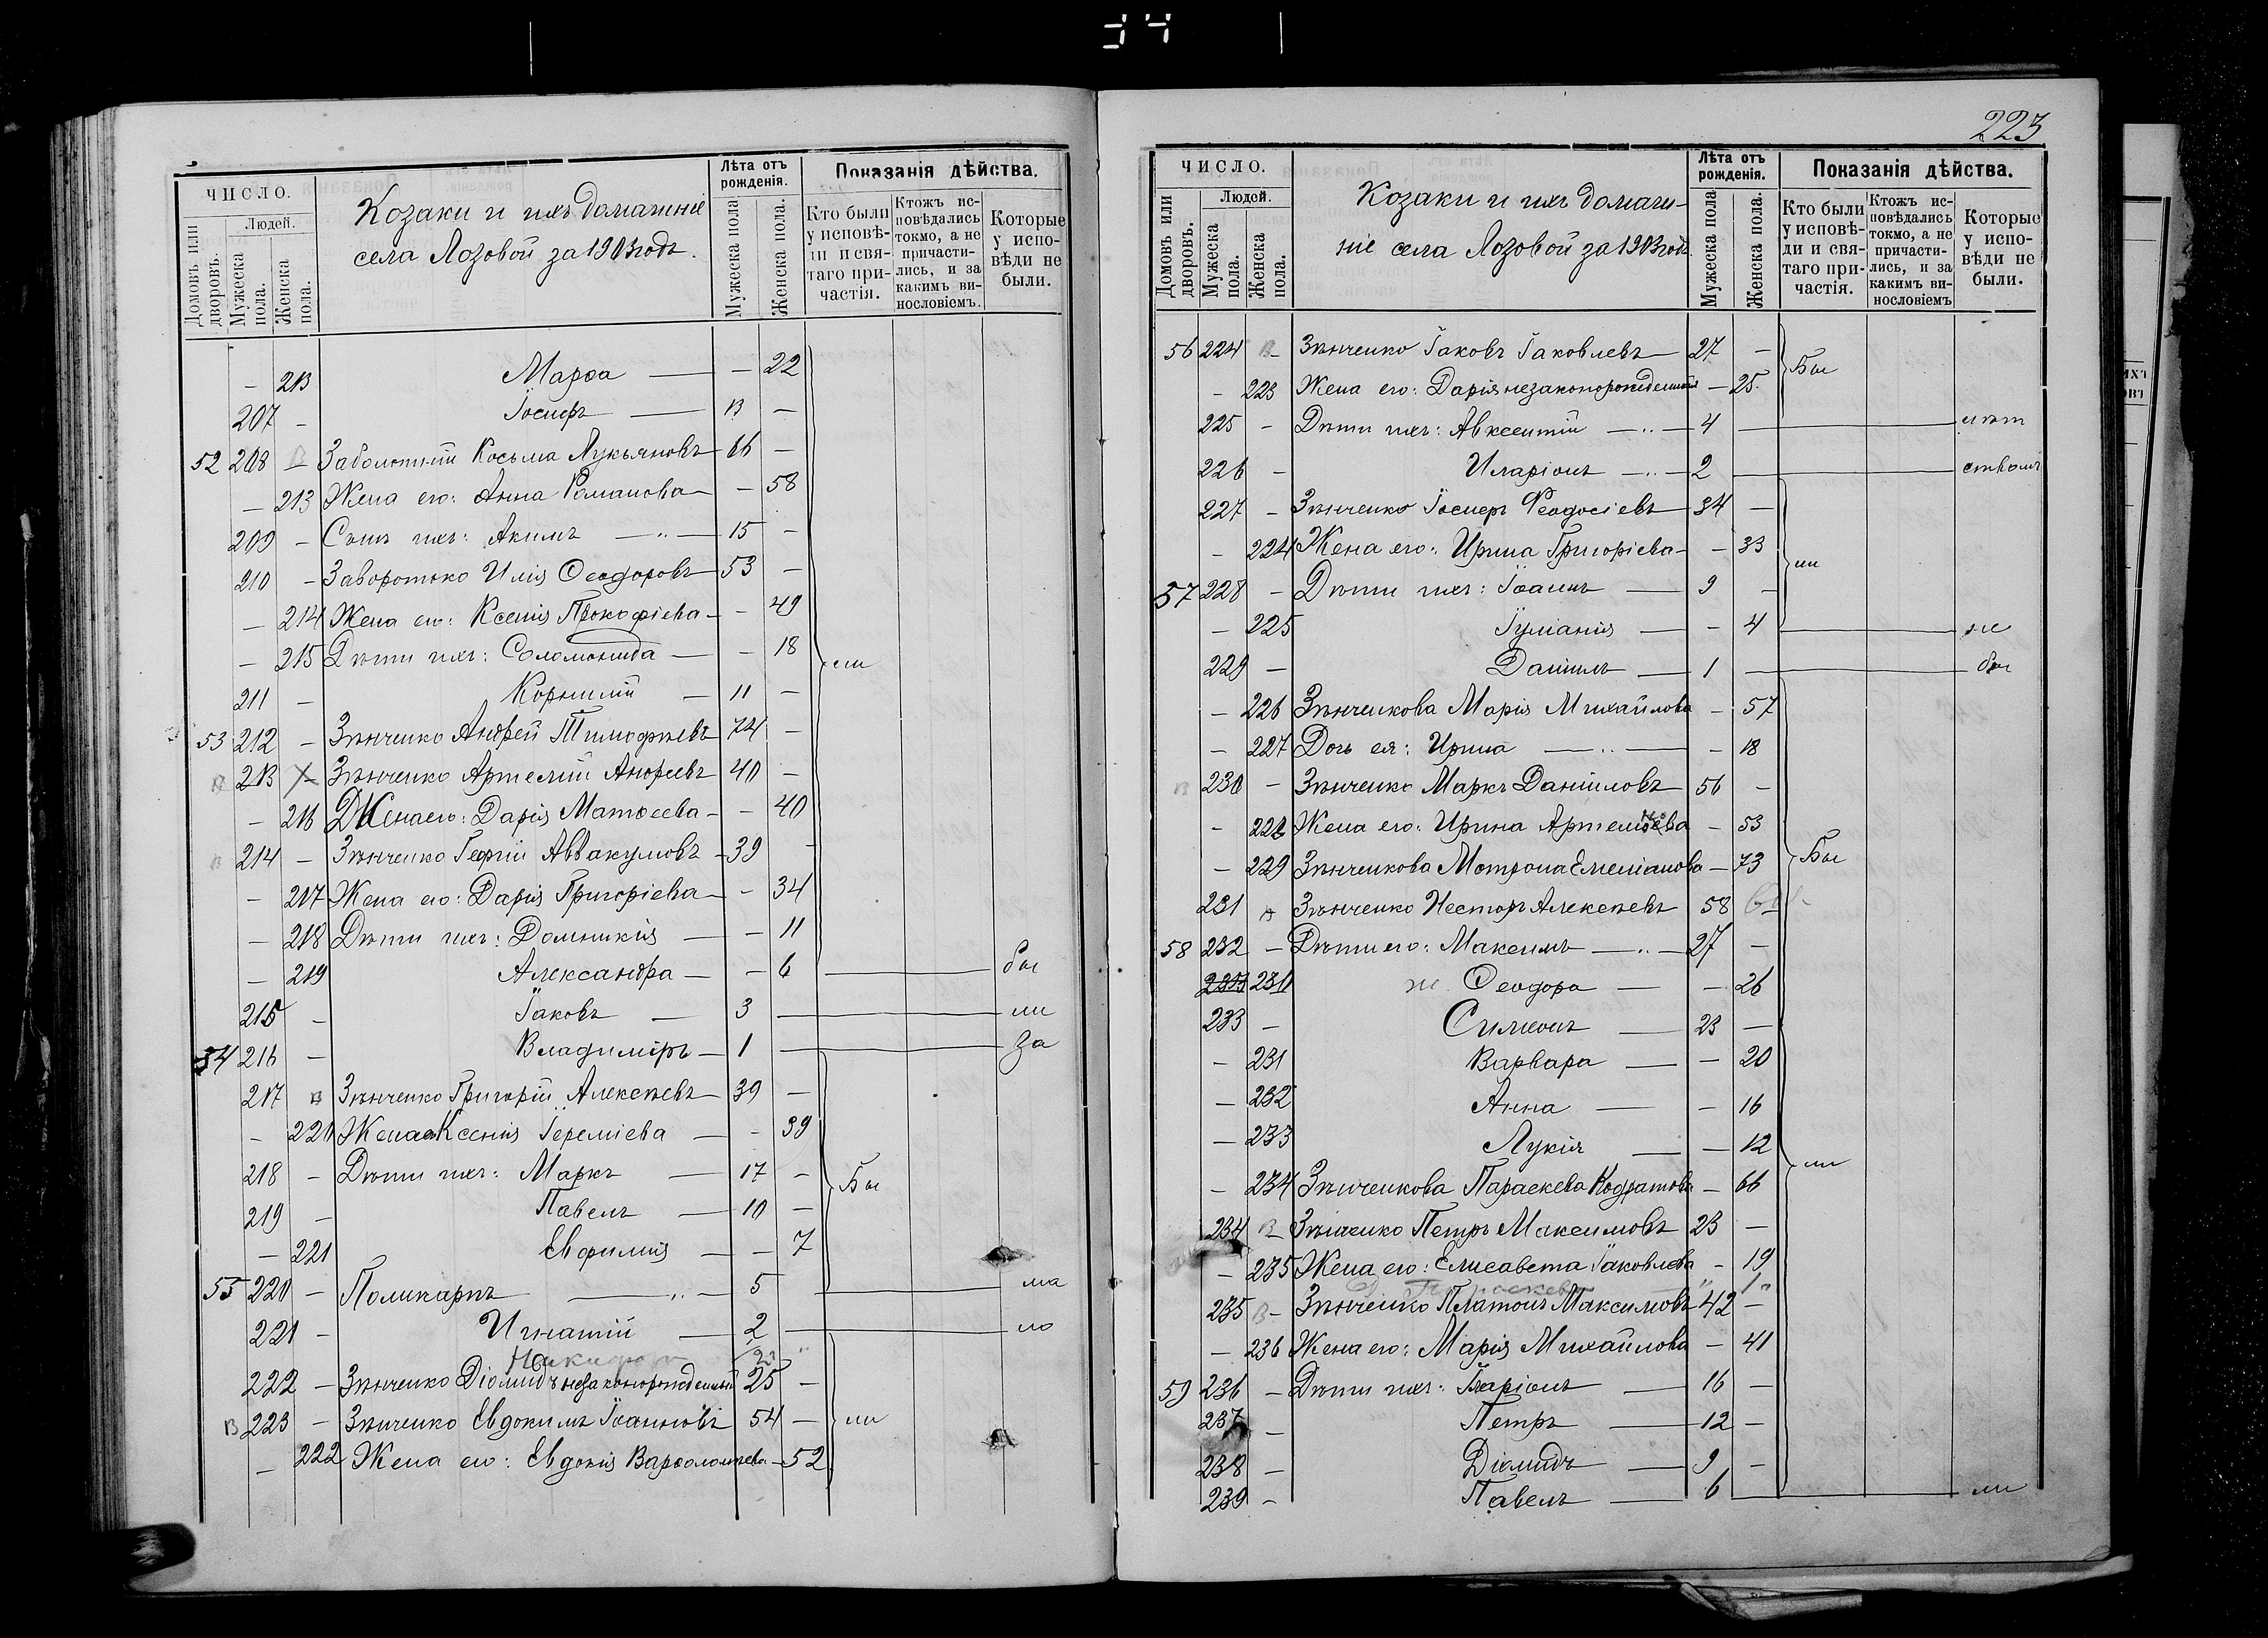 34
ЧИСЛО.
Людей.
Домовъ или дворовъ.
Мужеска пола.
Женска пола.
Козаки и ихъ домашніе
села Лозовой за 1903 годъ.
Лѣта отъ рожденія.
Мужеска пола
Женска пола.
Показанія дѣйства.
Кто были у исповѣди и святаго причастія.
Ктожъ исповѣдались токмо, а не причастились, и за какимъ винословіемъ.
Которые у исповѣди не были.
— Марѳа — — 22
207 — Іосифъ — 13 —
52 208 — Заболотний Косьма Лукьяновъ 66 —
— 213 Жена его: Анна Романова — — 58
209 — Сынъ ихъ: Акимъ — " — 15 —
210 — Заворотько Илія Ѳеодоровъ 53 —
— 214 Жена его: Ксенія Прокофіева — — 49
— 215 Дѣти ихъ: Соломонида — — 18 ли
211 — Корнилій — 11 —
53 212 — Зѣнченко Андрей Тимофѣевъ 74 —
в 213 — Зѣнченко Артемій Андреевъ 40 —
— 216 Жена его: Дарія Матѳеева — — 40
в 214 — Зѣнченко Георгій Аввакумовъ — 39 —
— 217 Жена его: Дарія Григоріева — — 34
— 218 Дѣти ихъ: Домникія — — 11
— 219 Александра — — 6 бы
215 — Іаковъ — 3 ли
54 216 — Владиміръ — 1 за
217 в Зѣнченко Григорій Алексѣевъ 39 —
— 220 Жена его Ксенія Іереміева — — 39
218 — Дѣти ихъ: Маркъ — 17 — Бы
219 — Павелъ — 10 —
— 221 Евфимія — — 7
55 220 — Поликарпъ — " — 5 ма
221 — Игнатій — 2 ло
222 — Зѣнченко Діомидъ незаконорожденный 25 —
в 223 — Зѣнченко Евдокимъ Іоанновъ 54 — ли
— 222 Жена его: Евдокія Варѳоломѣева — 52
223
ЧИСЛО.
Людей.
Домовъ или дворовъ.
Мужеска пола.
Женска пола.
Козаки и ихъ домаш-
ніе села Лозовой за 1903 годъ
Лѣта отъ рожденія.
Мужеска пола
Женска пола.
Показанія дѣйства.
Кто были у исповѣди и святаго причастія.
Ктожъ исповѣдались токмо, а не причастились, и за какимъ винословіемъ
Которые у исповѣди не были.
56 224 в — Зѣнченко Іаковъ Іаковлевъ — 27 — Бы
— 223 Жена его: Дарія незаконорожденная — 25
225 — Дѣти ихъ: Авксентій — " — 4 лѣт
226 — Иларіонъ — " — 2 ствомъ
227 — Зѣнченко Іосифъ Ѳеодосіевъ — 34 —
— 224 Жена его: Ирина Григоріева — — 33 ли
57 228 — Дѣти ихъ: Іоаннъ — 9 —
— 225 Іуліанія — — 4 не
229 — Даніилъ — 1 бы
— 226 Зѣнченкова Марія Михайлова — 57
— 227 Дочь ея: Ирина — " — — 18
в 230 — Зѣнченко Маркъ Даніиловъ 56 —
— 228 Жена его: Ирина — 53
— 229 Зѣнченкова Мотрона Емеліанова — 73 Бы
231 в Зѣнченко Несторъ Алексѣевъ 58
58 232 — Дѣти его: Максимъ — " — 27 —
230 ж. Ѳеодора — — 26
233 — Симеонъ — 23 —
— 231 Варвара — — 20
— 232 Анна — — 16
— 233 Лукія — — 12
— 234 Зѣнченкова Параскева Кодратова — 66 ли
234 в — Зѣнченко Петръ Максимовъ 23 —
— 235 Жена его: Елисавета Іаковлева — 19
235 в — Зѣнченко Платонъ Максимовъ 42 —
— 236 Жена его: Марія Михайлова — 41
59 236 — Дѣти ихъ: — 16 —
237 — Петръ — 12 —
238 — Діомидъ — 9 —
239 — Павелъ — 6 ли